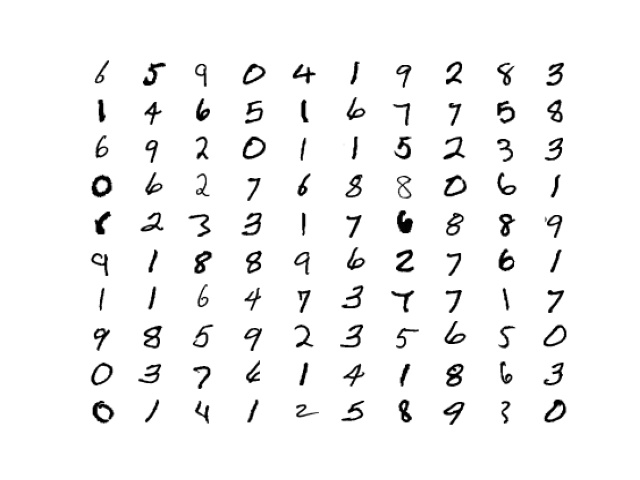 6 5 9 0 4 1 9 2 8 3
1 4 6 5 1 6 7 7 5 8
6 9 2 0 1 1 5 2 3 3
0 6 2 7 6 8 8 0 6 1
2 3 3 1 7 6 8 8 9
9 1 8 8 9 6 2 7 6 1
1 1 6 4 7 3 7 7 1 7
9 8 5 9 2 3 5 6 5 0
0 3 7 1 4 1 8 6 3
0 1 4 1 2 5 8 9 3 0